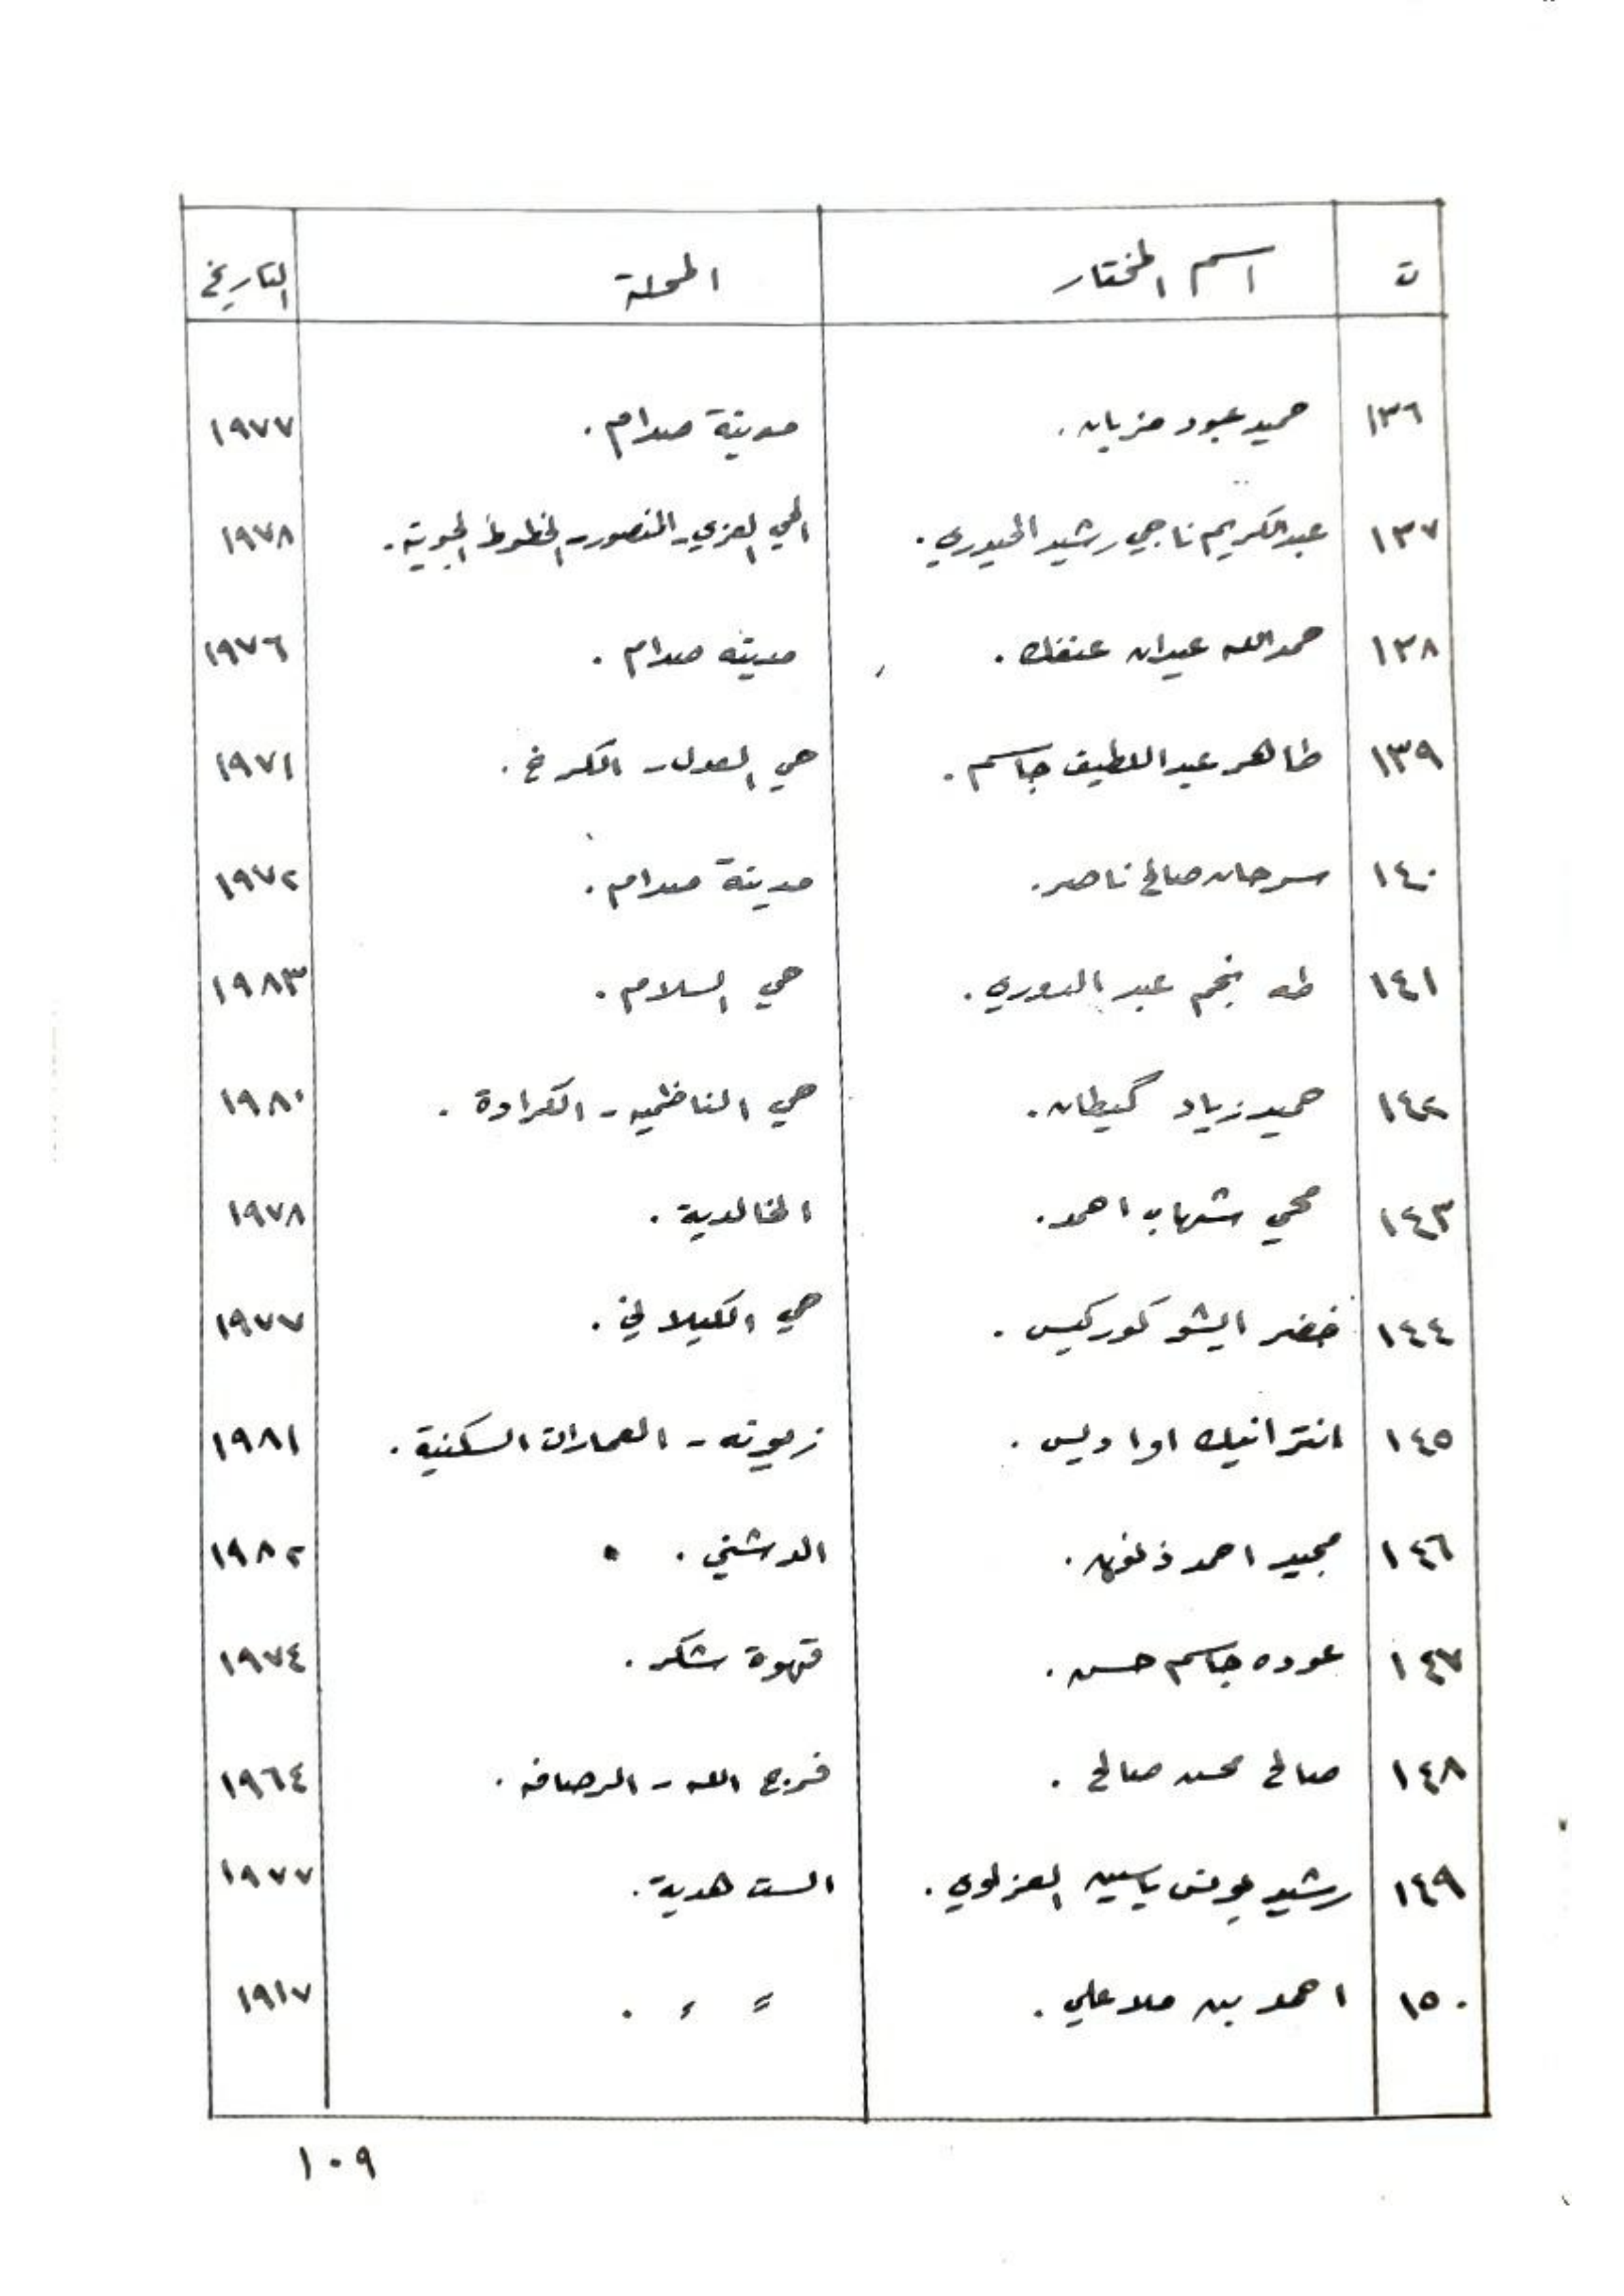 ت اسم المختار المحلة التاريخ
١٣٦ حميد عبود مزبان. مدينة صدام. ١٩٧٧
١٣٧ عبدالكريم ناجي رشيد الحيدري. الحي العربي - المنصور - الخطوط الجوية. ١٩٧٨
١٣٨ حمدالله عيدان. مدينه صدام. ١٩٧٦
١٣٩ ظاهر عبد اللطيف جاسم. حي العدل - الكرخ. ١٩٧١
١٤٠ سرحان صالح ناصر. مدينة صدام. ١٩٧٢
١٤١ طه نجم عبد الدوري. حي السلام. ١٩٨٣
١٤٢ حميد زياد گيطان. حي الناظميه - الكرادة. ١٩٨٠
١٤٣ محي شهاب احمد. الخالدية. ١٩٧٨
١٤٤ خضر ايشو كوركيس. حي الكيلاني. ١٩٧٧
١٤٥ انترانيك اواديس. زيونه - العمارات السكنية. ١٩٨١
١٤٦ مجيد احمد ذنون. الدشتي. ١٩٨٢
١٤٧ عوده جاسم حسن. قهوة شكر. ١٩٧٤
١٤٨ صالح محسن صالح. فرج الله - الرصافه. ١٩٦٤
١٤٩ رشيد ياسين العزاوي. الست هدية. ١٩٧٧
١٥٠ احمد بن ملا علي. = =. ١٩١٧
١٠٩